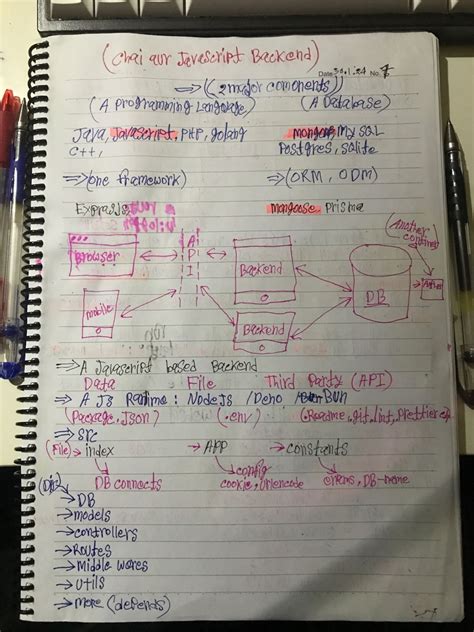 (Chai aur Javascript Backend)
Date 30.1.24 No. 7
⇒ (2 major comonents)
(A Programming Language) (A Database)
Java, Javascript, PHP, golang mongo, MySQL
C++, Postgres, sqlite
⇒ (one framework) ⇒ (ORM, ODM)
ExpressJs mongoose, Prisma
Another continent
Browser A P I Backend DB
mobile Backend
⇒ A Javascript based Backend
Data File Third Party (API)
⇒ A JS Runtime: NodeJs /Deno /Bun
(Package.Json) (.env) (Readme, git, lint, Prettier etc)
⇒ src
(File) → index → APP → constants
DB connects config enums, DB-name
cookie, urlencode
(Dir) → DB
→ models
→ controllers
→ Routes
→ Middle wares
→ utils
→ more (depends)